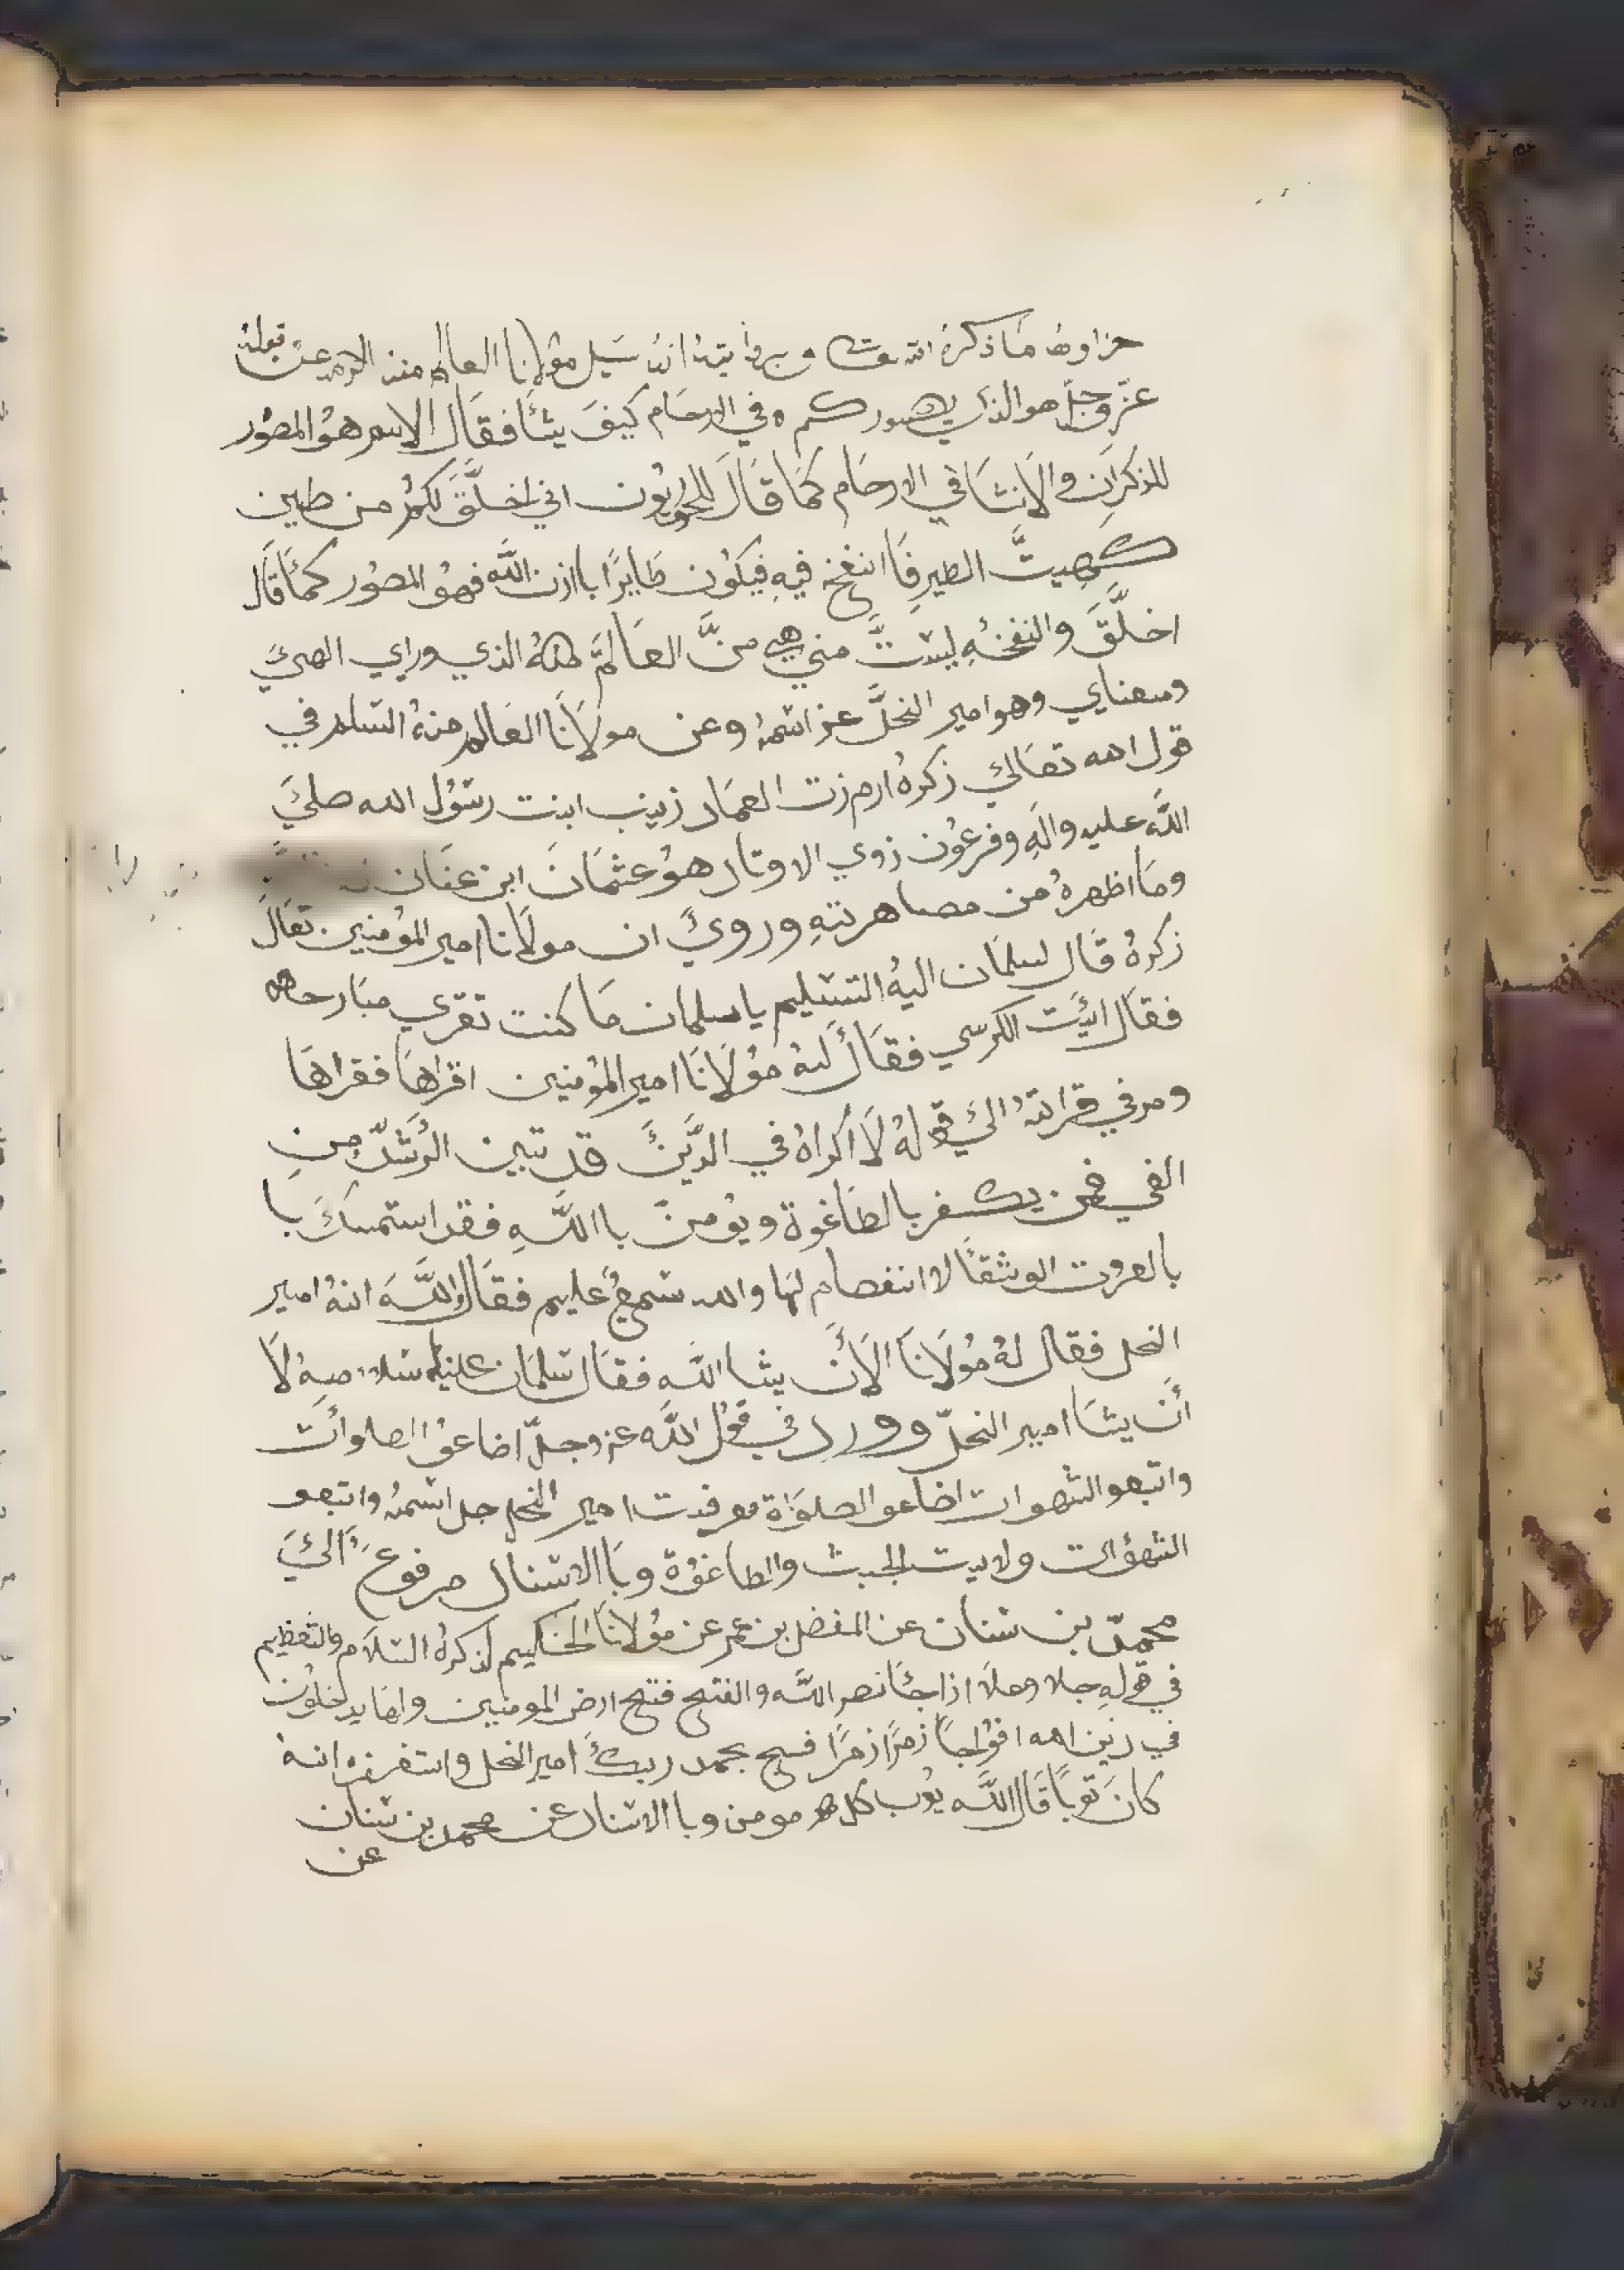 ما ذكره الله انه سيل مولانا العالم منه عن قوله
عزّ وجلّ هو الذي يصوركم في الارحام كيفَ يشأ فقال الاسم هو المصوُر
للذكرانِ والانثا في الارحام كمَا قَالَ اني اخلَّقَ لكمُ من طين
كهيتَّ الطيرِ فَا انفخ فيهِ فيكوُن طَايرًا باازن اللَّه فهوُ المصوُر كمَا قال
اخلَّقَ والنفخه ليسَتَّ مني هي منَّ العَالمَّ الذي وراي الهيَ
ومعناي وهو امير النحلَّ عز اسمهُ وعن مولَانَا العَالم منهُ السَلم في
قول الله تعَالي ذكرهُ ارم زت العمَاد زينب ابنت رسَوُل الله صليَ
اللَّه عليه والهِ وفرعوُن زوي الاوتاد هوُ عثمَانَ ابن عفَان
ومَا اظهرهُ من مصاهرتهِ ورويَ ان مولَانا امير المؤمنين تعَالَ
زكرهُ قَال لسلمَان اليهُ التسَليم يا سلمان مَا كنت تقري
فقَال ائيَت الكرسي فقَالَ لهُ موُلَانَا امير المؤمنين اقراهَا فقراهَا
ومر في قراتهُ اليَ قولهُ لَا اكراهُ في الدَّينَ قد تبين الرُشدّ منِ
الغي فمن يكفر بالطَاغوة ويوُمنّ با اللَّهِ فقد استمسكَ با
بالعروت الوثقَا لا انفصام لهَا والله سَميعٌ عليم فقَال اللَّهَ انهُ امير
النحل فقال لهُ موُلَانَا الَا أَن يشا اللَّه فقَال سَلمَان عليه لَا
أَن يشَا امير النحلّ وورد في قوُل اللَّه عز وجلّ اضاعوُ الصلوات
واتبعو الشهوات اضاعو الصلوَاة معرفت امير النحل جل اسَمهُ واتبعو
الشهوُات ولايت الجبت والطاغوُة وبَا الاسَناد مرفوعَ اليَ
محمدّ بن سَنان عن المفضل بن عمر عن موُلانَا الحَكيم لذكرهُ السَلَام والتعَظيم
في قولهِ جلا وعلَا ازا جَا نصر اللَّه والفتح فتح ارض المومنين يدخلوُن
في دين الله افوُاجًا زمرًا زمرًا فسبح بحمد ربكَ امير النحل واستغفره انهُ
كانَ توبًا قَال اللَّه يوُب كل مومن وبا الاسَناد عن محمد بن سَنان
عن